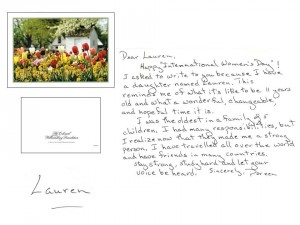 Dear Lauren,
Happy "International Women's Day"!
I asked to write to you because I have
a daughter named Lauren. This
reminds me of what it's like to be 11 years
old and what a wonderful, changeable,
and hopeful time it is.
I was the oldest in a family of
children. I had many responsibilities, but
I realize now that they made me a strong
person. I have travelled all over the world
and have friends in many countries.
Stay strong, study hard and let your
voice be heard. Sincerely,
Lauren